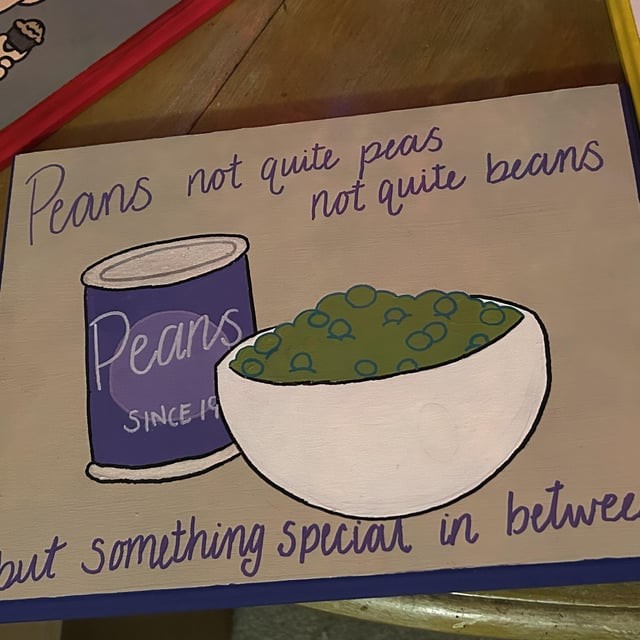 Peans not quite peas
not quite beans
Peans
SINCE 19
but something special in betwee